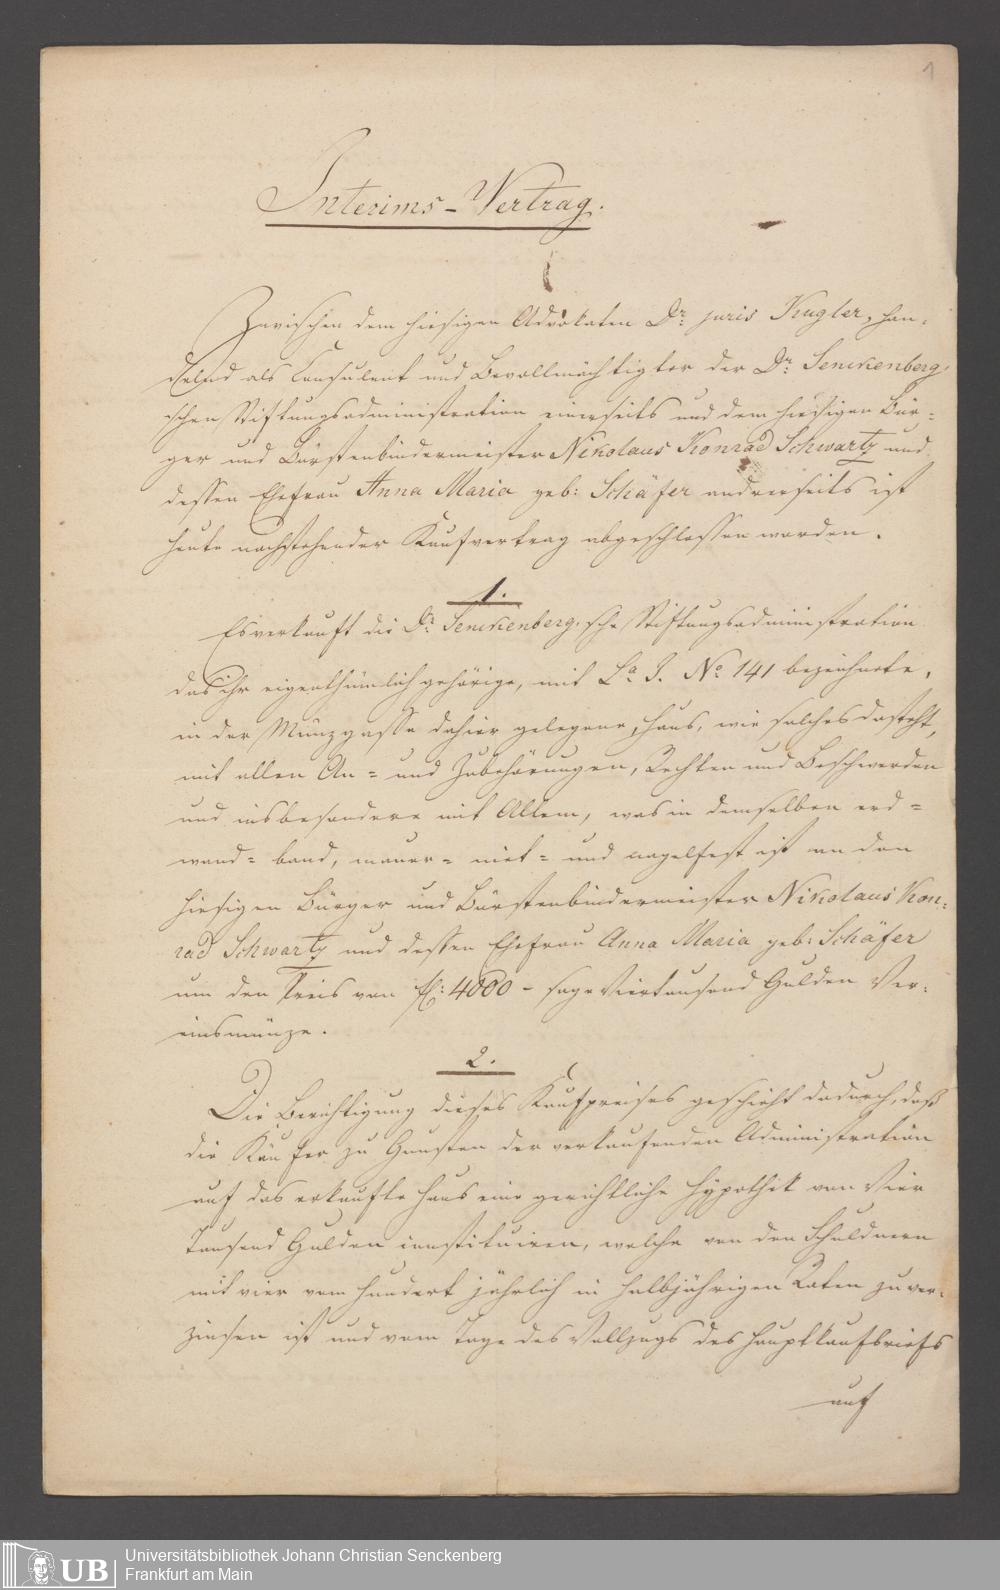 1
Interims-Vertrag.
Zwischen dem hiesigen Advokaten Dr: juris Kugler, han-
delnd als Consulent und Bevollmächtigter der Dr: Senckenberg'
schen Stiftungsadministration einerseits und dem hiesigen Bür-
ger und Bürstenbindermeister Nikolaus Konrad Schwartz und
dessen Ehefrau Anna Maria geb: Schäfer andrerseits ist
heute nachstehender Kaufvertrag abgeschlossen worden.
1.
Es verkauft die Dr: Senckenberg'sche Stiftungsadministration
das ihr eigenthümlich gehörige, mit La. J. No 141 bezeichnete,
in der Münzgasse dahier gelegene Haus, wie solches dasteht,
mit allen An- und Zubehörungen, Rechten und Beschwerden
und insbesondere mit Allem, was in demselben erd-
wand- band, mauer- niet- und nagelfest ist an den
hiesigen Bürger und Bürstenbindermeister Nikolaus Kon-
rad Schwartz und dessen Ehefrau Anna Maria geb: Schäfer
um den Preis von fl: 4000 - sage Viertausend Gulden Ver-
einsmünze.
2.
Die Berichtigung dieses Kaufpreises geschieht dadurch, daß
die Käufer zu Gunsten der verkaufenden Administration
auf das erkaufte Haus eine gerichtliche Hypothek von Vier
Tausend Gulden constituiren, welche von den Schuldnern
mit vier vom Hundert jährlich in halbjährigen Raten zu ver-
zinsen ist und vom Tage des Vollzugs des Hauptkaufbriefs
auf
UB
Universitätsbibliothek Johann Christian Senckenberg
Frankfurt am Main